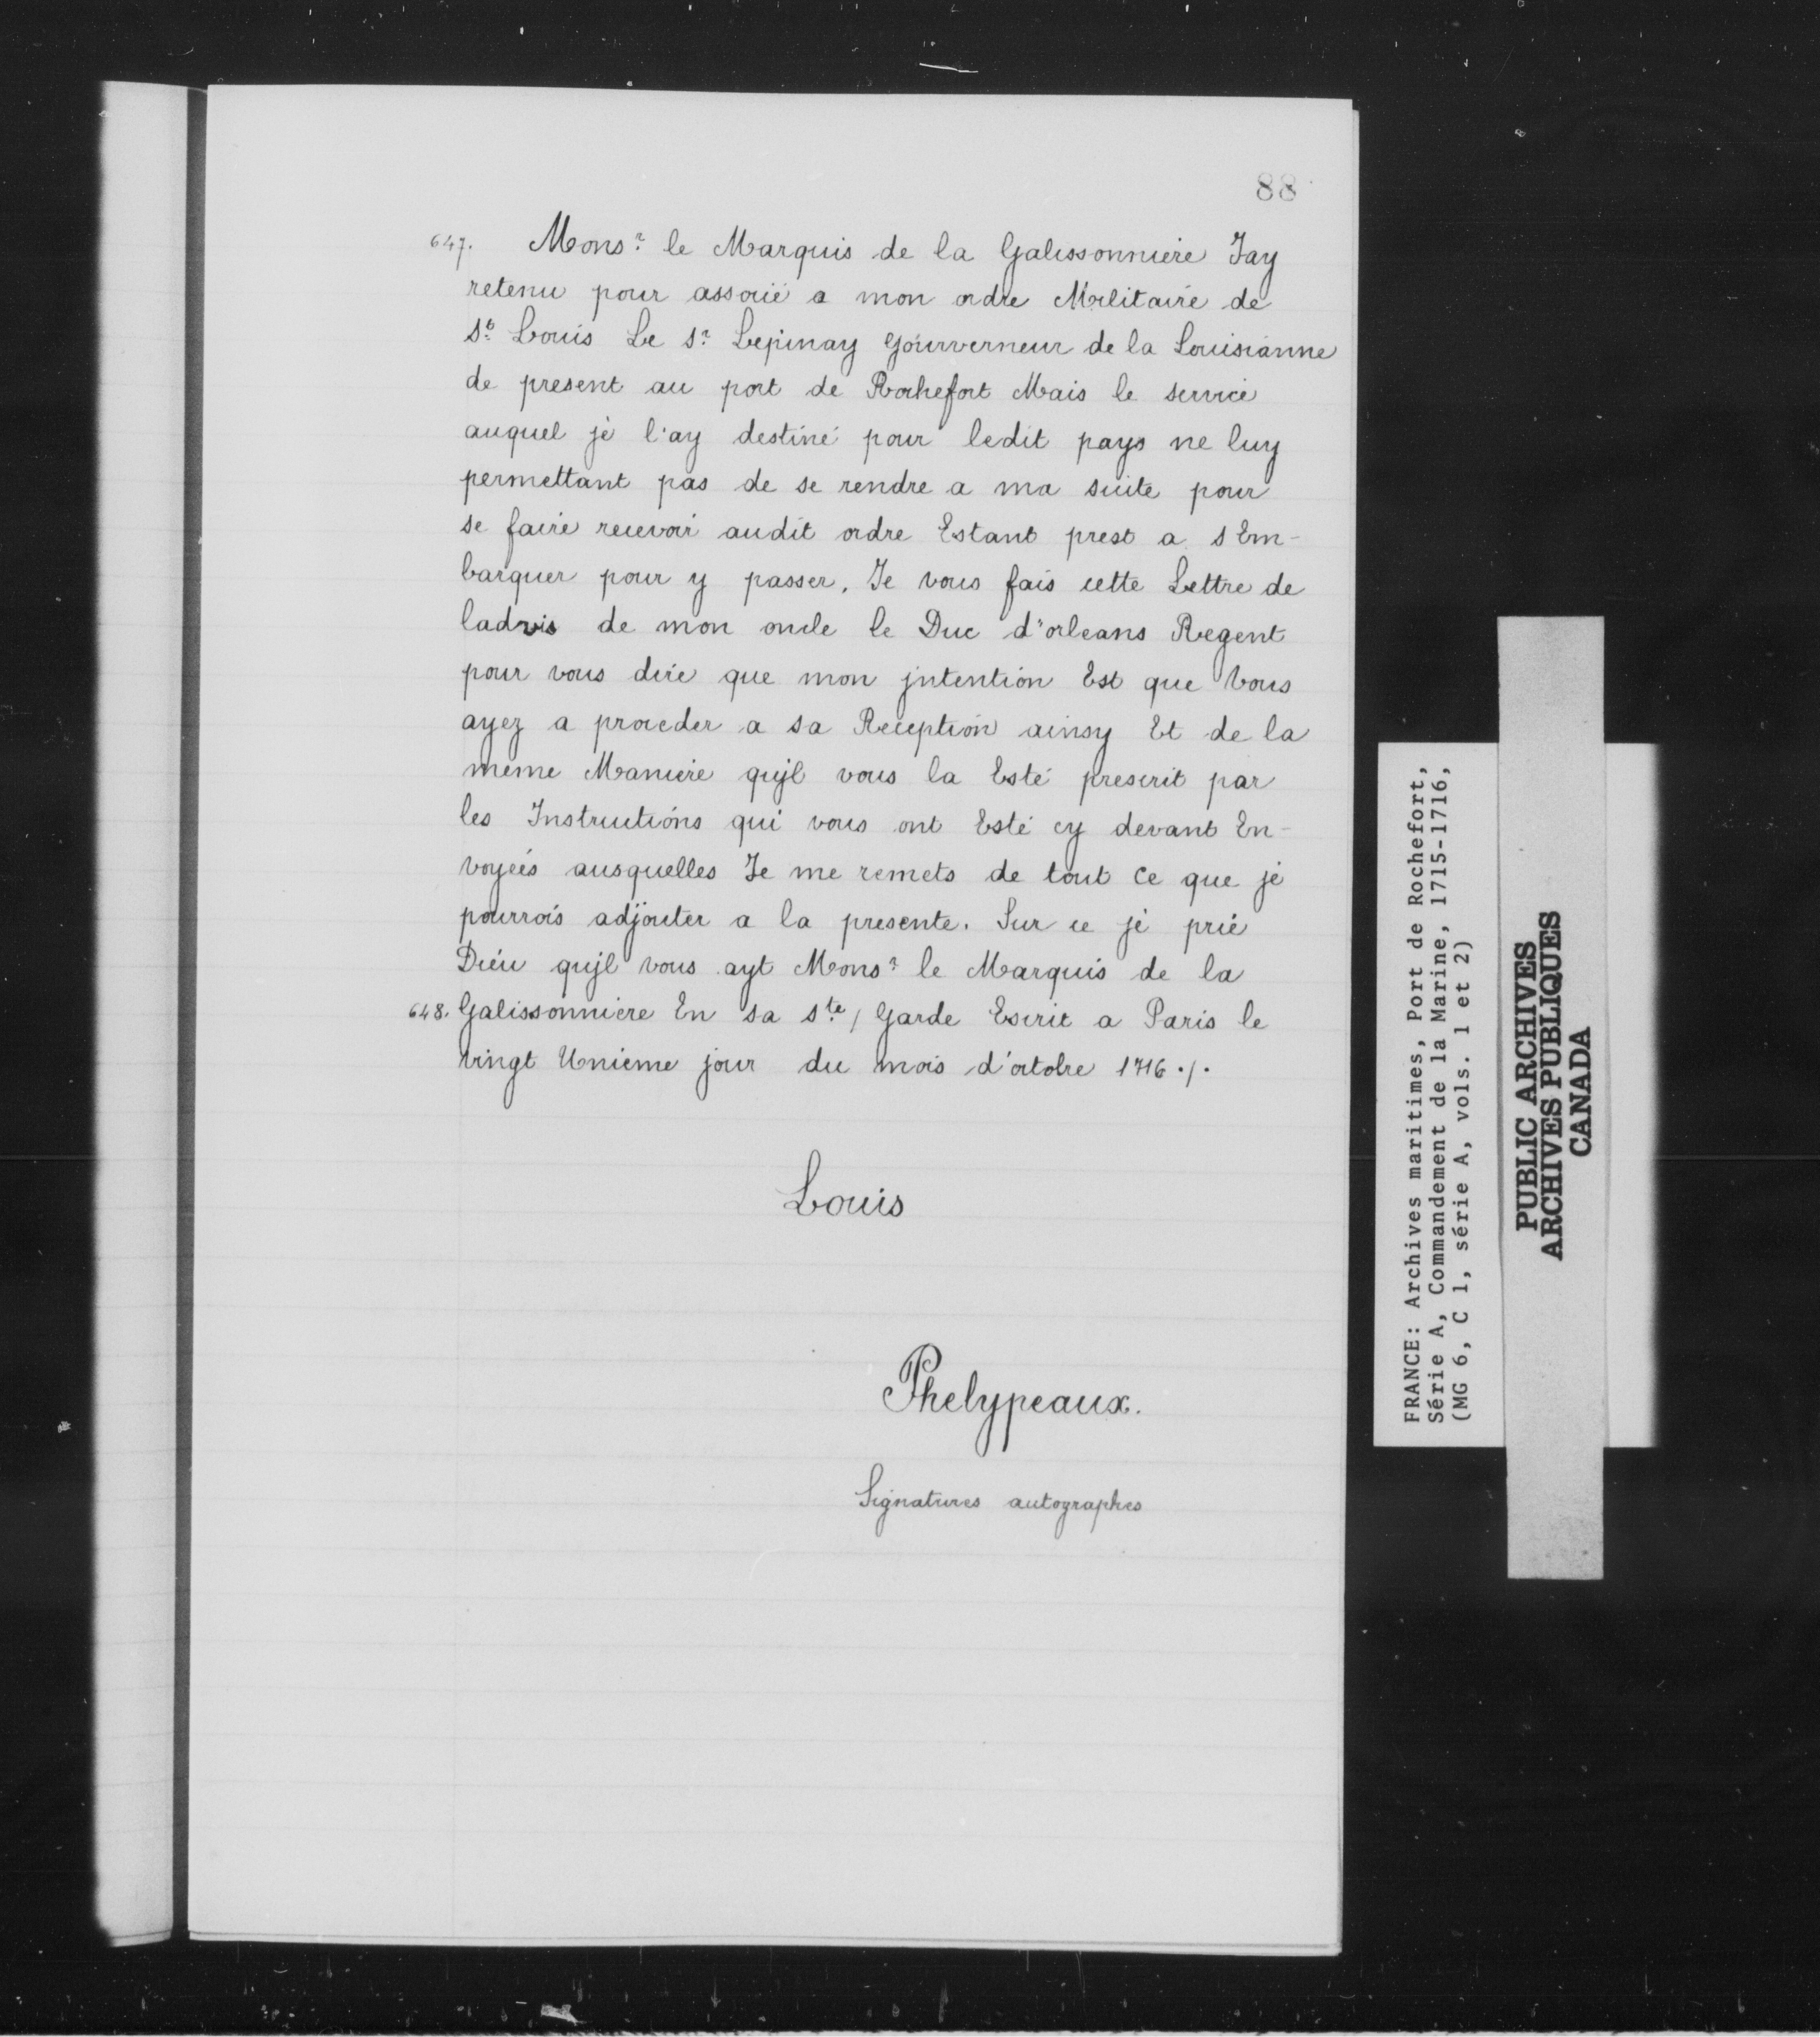 88
647. Monsr le Marquis de la Galissonniere Jay
retenu pour associé a mon ordre Militaire de
St Louis Le Sr Lepinay Gourverneur de la Louisianne
de present au port de Rochefort Mais le service
auquel je l'ay destiné pour ledit pays ne luy
permettant pas de se rendre a ma suite pour
se faire recevoir audit ordre Estant prest a s Em-
barquer pour y passer. Je vous fais cette Lettre de
ladvis de mon oncle le Duc d'orleans Regent
pour vous dire que mon jntention Est que Vous
ayez a proceder a sa Reception ainsy Et de la
meme Maniere qujl vous la Esté prescrit par
les Instructions qui vous ont Esté cy devant En-
voyeés ausquelles Je me remets de tout ce que je
pourrois adjouter a la presente. Sur ce je prie
Dieu qujl vous ayt Monsr le Marquis de la
648. Galissonniere En sa Ste / Garde Escrit a Paris le
vingt Unieme jour du mois d'octobre 1716 ./.
Louis
Phelypeaux.
Signatures autographes
FRANCE: Archives maritimes, Port de Rochefort,
Série A, Commandement de la Marine, 1715-1716,
(MG 6, C 1, série A, vols. 1 et 2)
PUBLIC ARCHIVES
ARCHIVES PUBLIQUES
CANADA